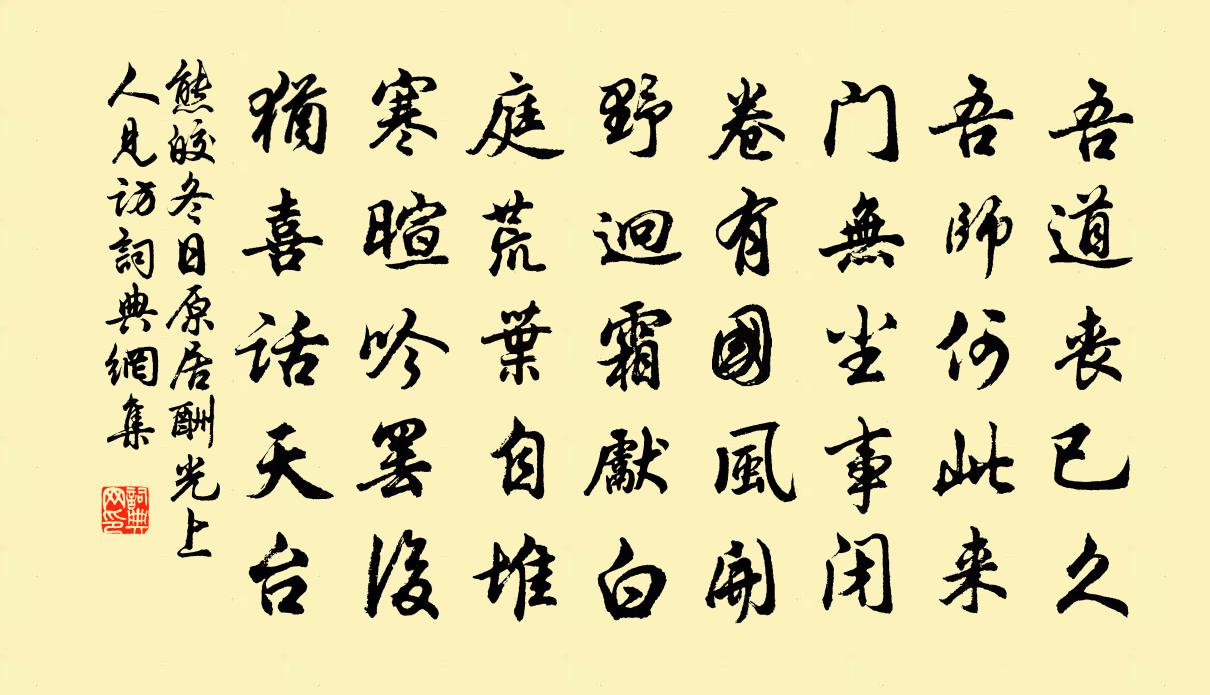 吾道丧已久
吾師何此来
门無尘事闭
卷有國風開
野迥霜獻白
庭荒葉自堆
寒暄吟罢後
猶喜話天台
熊皎冬日原居酬光上
人見访詞典網集
詞典网印